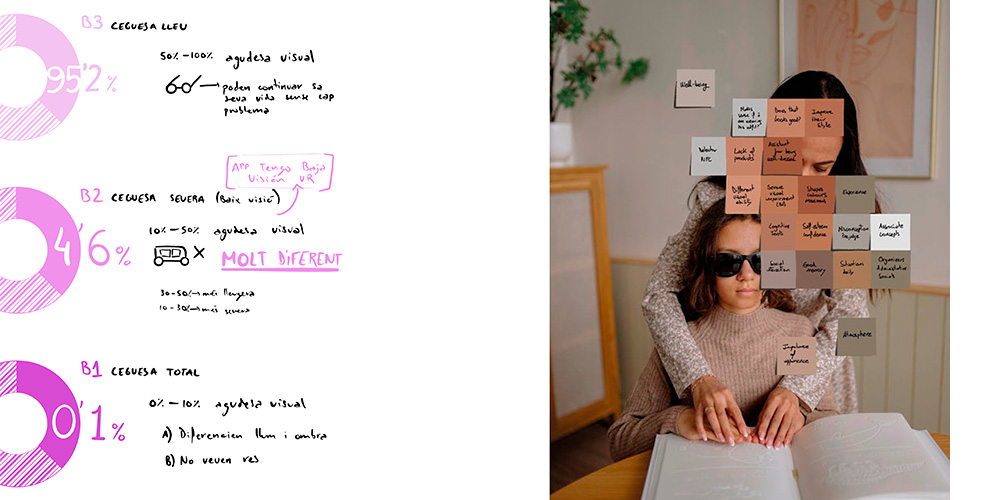 B3 CEGUESA LLEU
95'2%
50% - 100% agudesa visual
poden continuar sa
seva vida sense cap
problema
APP Tengo Baja
Visión VR
B2 CEGUESA SEVERA (Baix visió)
4'6%
10% - 50% agudesa visual
MOLT DIFERENT
30-50% → més lleugera
10-30% → més severa
B1 CEGUESA TOTAL
0'1%
0% - 10% agudesa visual
A) Diferencien llum i ombra
B) No veuen res.
Well-being
Does that
looks good?
Improve
their
style
Detector
NFC
Lack of
products
Assistant
for being
well-dressed
Different
visual
ability
Severe
visual
impairment
Shapes
colours
movement
Experience
Cognitive
skills
Self-esteem
confidence
Misconception
Prejudge
Associate
concepts
Social
Good
memory
Situation
help
Organizers
Administrative
Socials
Atmosphere
Importance
of
appearence